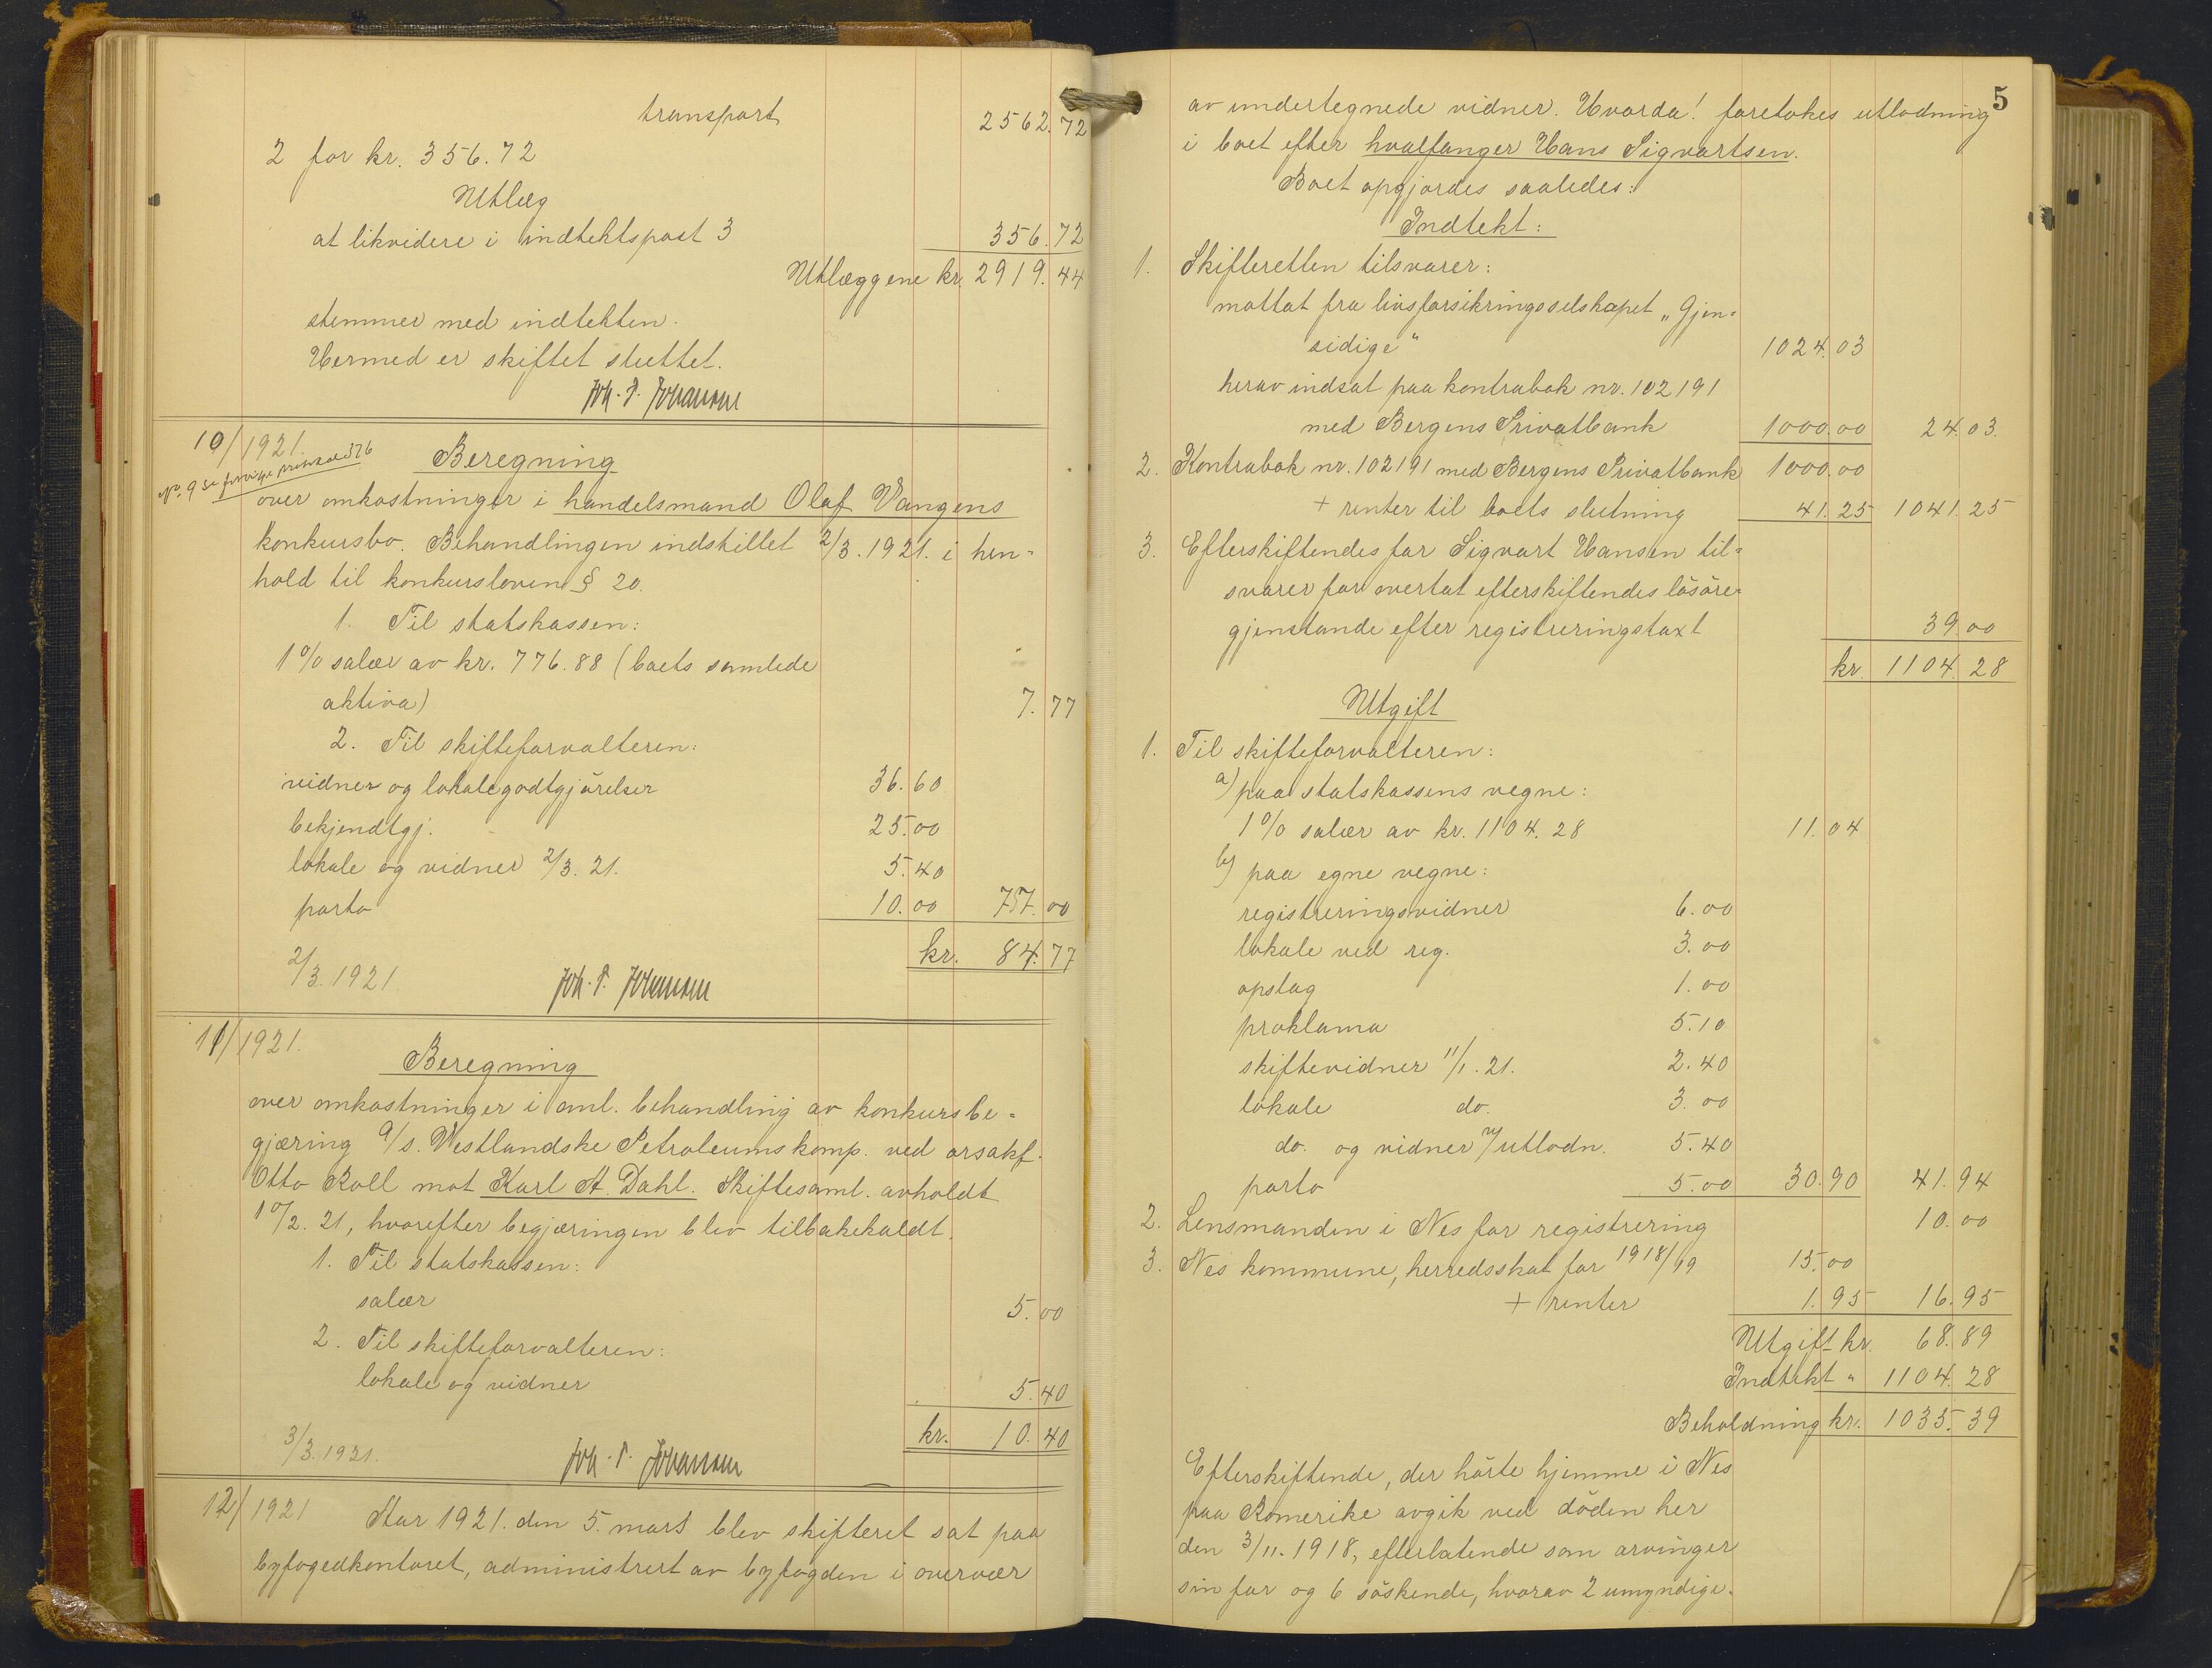 transport 2562.72
2 for kr. 356.72
Utlæg
at likvidere i indtektspost 3 356.72
Utlæggene kr. 2919.44
stemmer med indtekten.
Hermed er skiftet sluttet.
Joh. P. Johansen
10/1921.
No. 9 se forrige protokol 376
Beregning
over omkostninger i handelsmand Olaf Vangens
konkursbo. Behandlingen indstillet 2/3.1921. i hen=
hold til konkursloven § 20.
1. Til statskassen:
1% salær av kr. 776.88 (boets samlede
aktiva) 7.77
2. Til skifteforvalteren:
vidner og lokalegodtgjörelser 36.60
bekjendtgj. 25.00
lokale og vidner 2/3.21. 5.40
porto 10.00 77.00
kr. 84.77
2/3.1921. Joh. P. Johansen
11/1921.
Beregning
over omkostninger i anl. behandling av konkursbe=
gjæring a/s. Vestlandske Petroleumskomp. ved orsakf.
Otto Roll mot Karl A. Dahl. Skiftesaml. avholdt
10/2.21, hvorefter begjæringen blev tilbakekaldt.
1. Til statskassen:
salær 5.00
2. Til skifteforvalteren:
lokale og vidner 5.40
kr. 10.40
3/3.1921. Joh. P. Johansen
12/1921 Aar 1921. den 5. mars blev skifteret sat paa
byfogedkontoret, administrert av byfogden i overvær
5
av undertegnede vidner. Hvorda! foretokes utlodning
i boet efter hvalfanger Hans Sigvartsen.
Boet opgjordes saaledes:
Indtekt:
1. Skifteretten tilsvarer:
mottat fra livsforsikringsselskapet „Gjen=
sidige“ 1024.03
herav indsat paa kontrabok nr. 102191
med Bergens Privatbank 1000.00 24.03.
2. Kontrabok nr. 102191 med Bergens Privatbank 1000.00
+ renter til boets slutning 41.25 1041.25
3. Efterskiftendes far Sigvart Hansen til=
svarer for overtat efterskiftendes lösöre=
gjenstande efter registreringstaxt 39.00
kr. 1104.28
Utgift
1. Til skifteforvalteren:
a) paa statskassens vegne:
1% salær av kr. 1104.28 11.04
b) paa egne vegne:
registreringsvidner 6.00
lokale ved reg. 3.00
opslag 1.00
proklama 5.10
skiftevidner 11/1.21. 2.40
lokale do. 3.00
do. og vidner v/utlodn. 5.40
porto 5.00 30.90 41.94
2. Lensmanden i Nes for registrering 10.00
3. Nes kommune, herredsskat for 1918/19 15.00
+ renter 1.95 16.95
Utgift kr. 68.89
Indtekt " 1104.28
Beholdning kr. 1035.39
Efterskiftende, der hörte hjemme i Nes
paa Romerike avgik ved döden her
den 3/11.1918, efterlatende som arvinger
sin far og 6 söskende, hvorav 2 umyndige.